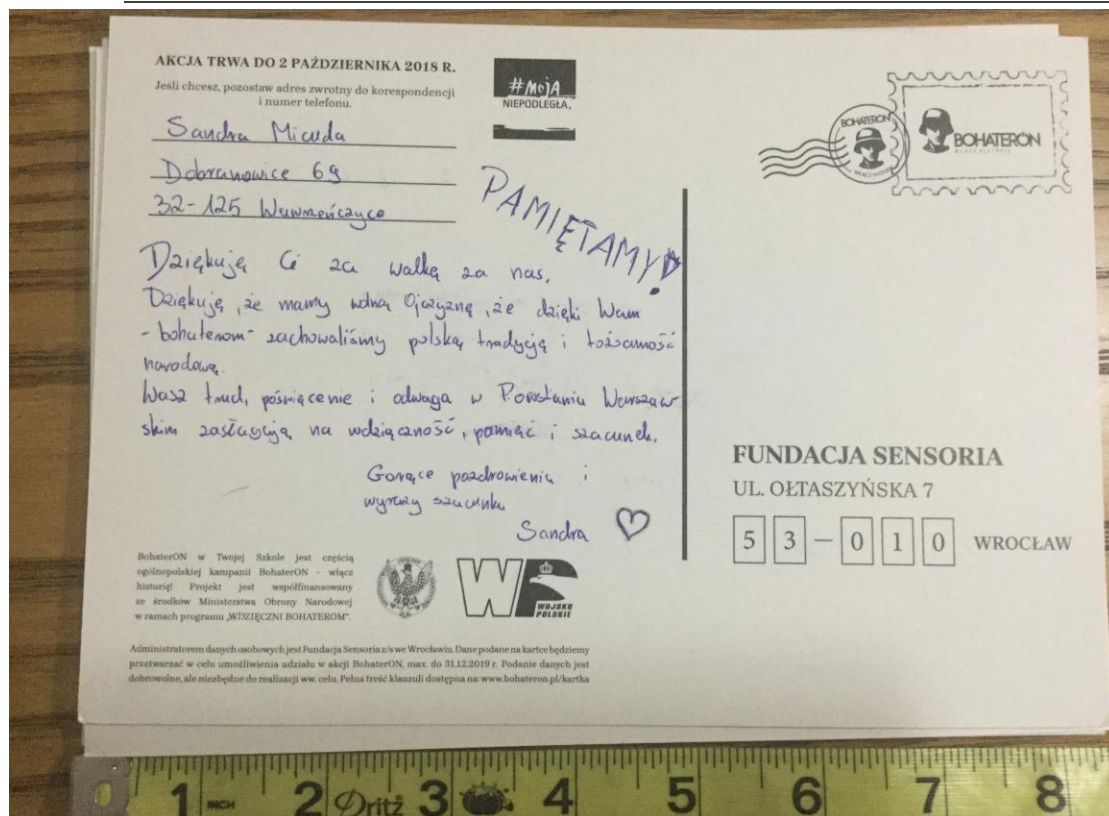 AKCJA TRWA DO 2 PAŹDZIERNIKA 2018 R.
Jeśli chcesz, pozostaw adres zwrotny do korespondencji
i numer telefonu.
Sandra Micuda
Dobranowice 69
32-125 Wawrzeńczyce
#MOJA
NIEPODLEGŁA.
PAMIĘTAMY!
BOHATERON
BOHATERON
WŁĄCZ HISTORIĘ
Dziękuję Ci za walkę za nas.
Dziękuję, że mamy wolną Ojczyznę, że dzięki Wam
- bohaterom - zachowaliśmy polską tradycję i tożsamość
narodową.
Wasz trud, poświęcenie i odwaga w Powstaniu Warszaw
skim zasługują na wdzięczność, pamięć i szacunek.
Gorące pozdrowienia i
wyrazy szacunku
Sandra
FUNDACJA SENSORIA
UL. OŁTASZYŃSKA 7
53-010 WROCŁAW
BohaterON w Twojej Szkole jest częścią
ogólnopolskiej kampanii BohaterON - włącz
historię! Projekt jest współfinansowany
ze środków Ministerstwa Obrony Narodowej
w ramach programu „WDZIĘCZNI BOHATEROM".
WP
WOJSKO
POLSKIE
Administratorem danych osobowych jest Fundacja Sensoria z/s we Wrocławiu. Dane podane na kartce będziemy
przetwarzać w celu umożliwienia udziału w akcji BohaterON, max. do 31.12.2019 r. Podanie danych jest
dobrowolne, ale niezbędne do realizacji ww. celu. Pełna treść klauzuli dostępna na: www.bohateron.pl/kartka
1 INCH 2 Dritz 3 4 5 6 7 8